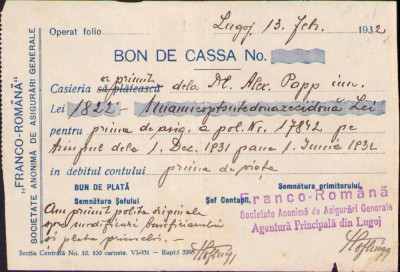 "FRANCO-ROMÂNĂ"
SOCIETATE ANONIMA DE ASIGURĂRI GENERALE
Operat folio
Lugoj 13. Feb. 1932
BON DE CASSA No.
a primit
Casieria să/plătească dela Dl. Alex. Papp
Lei 1822 - Unamieoptsutedouazecidouă Lei
pentru prima de asig. a pol. Nr. 17842 pe
timpul dela 1. Dec. 1931 pana 1. Iunie 1932
în debitul contului prima de viața
BON DE PLATĂ
Semnătura primitorului
Semnătura Şefului
Şef Contabil,
Franco-Română
Societate Anonimă de Asigurări Generale
Agentură Principala din Lugoj
Am primit polita originala
spre modificarea beneficiarului
si plata primelor.
Secția Centrala No. 10. 100 carnete. VI-931 — Rapid 3295